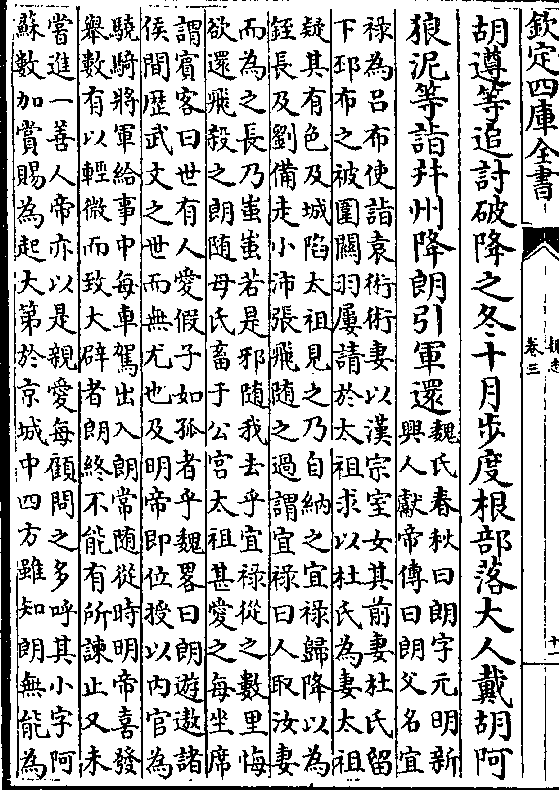 欽定四庫全書
魏志
卷三
十一
胡遵等追討破降之冬十月步度根部落大人戴胡阿
狼泥等詣幷州降朗引軍還
魏氏春秋曰朗字元明新
興人獻帝傳曰朗父名宜
祿為呂布使詣袁術術妻以漢宗室女其前妻杜氏留
下邳布之被圍關羽屢請於太祖求以杜氏為妻太祖
疑其有色及城陷太祖見之乃自納之宜祿歸降以為
銍長及劉備走小沛張飛隨之過謂宜祿曰人取汝妻
而為之長乃蚩蚩若是邪隨我去乎宜祿從之數里悔
欲還飛殺之朗隨母氏畜于公宮太祖甚愛之每坐席
謂賓客曰世有人愛假子如孤者乎魏畧曰朗遊遨諸
侯間歷武文之世而無尤也及明帝即位授以內官為
驍騎將軍給事中每車駕出入朗常隨從時明帝喜發
舉數有以輕微而致大辟者朗終不能有所諫止又未
嘗進一善人帝亦以是親愛每顧問之多呼其小字阿
蘇數加賞賜為起大第於京城中四方雖知朗無能為